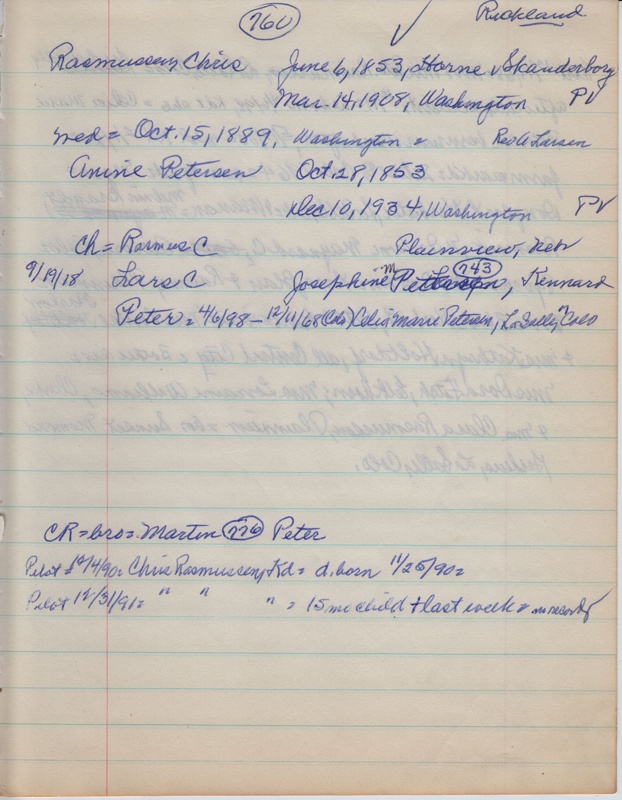 760 Richland
Rasmussen, Chris June 6, 1853, Horne Skanderborg
Mar. 14, 1908, Washington PV
med = Oct. 15, 1889, Washington = Rev A Larsen
Anine Petersen Oct. 28, 1853
Dec 10, 1934, Washington PV
Ch = Rasmus C Plainview, Neb
9/19/18 Lars C Josephine M Petersen 743, Kennard
Peter = 4/6/98 - 12/11/68 (Colo) Celia Marie Petersen, LaSalle, Colo
CR = bro = Martin 776 Peter
Pilot = 12/4/90 = Chris Rasmussen, Kd = d. born 11/25/90 =
Pilot 12/31/91 = " " " = 15 mo child + last week = no record